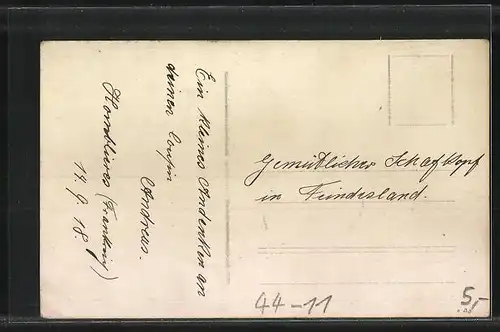 Ein kleines Andenken an
deinen Cousin
Andreas.
Homblières (Frankreich)
14.9.18.
Gemütlicher Schafkopf
in Feindesland.
44-11
5,-